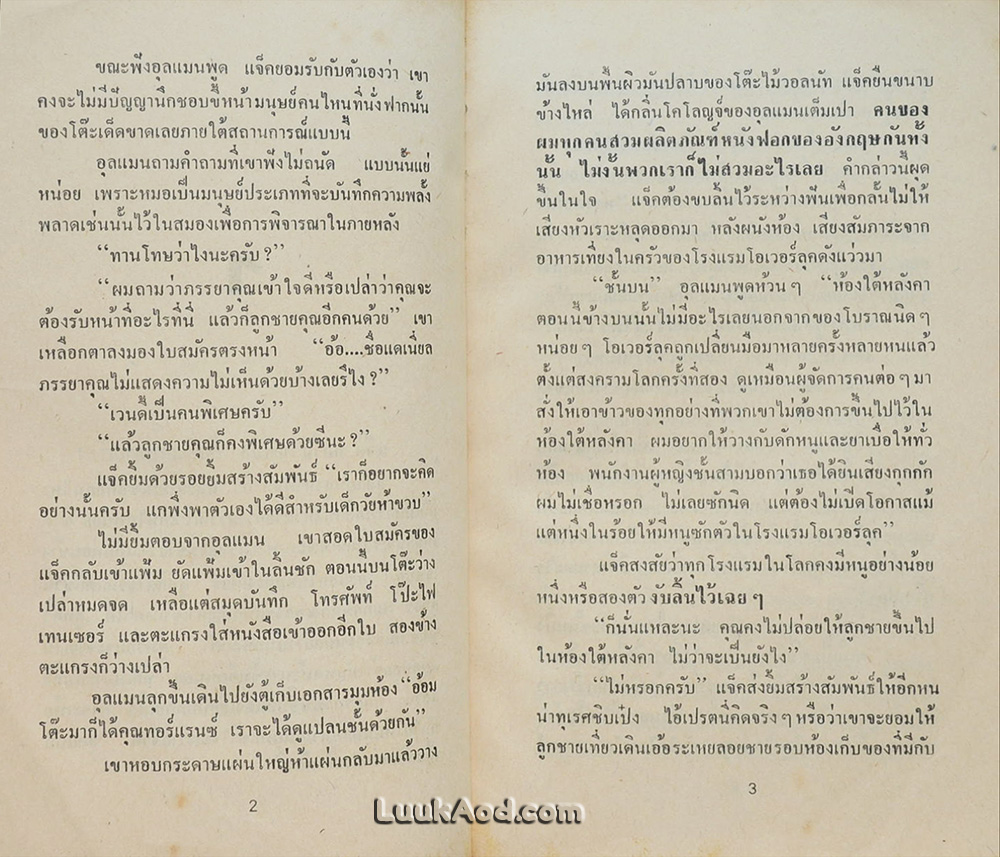 ขณะฟังอุลแมนพูด แจ็คยอมรับกับตัวเองว่า เขา
คงจะไม่มีปัญญานึกชอบขี้หน้ามนุษย์คนไหนที่นั่งฟากนั้น
ของโต๊ะเด็ดขาดเลยภายใต้สถานการณ์แบบนี้
อุลแมนถามคำถามที่เขาฟังไม่ถนัด แบบนั้นแย่
หน่อย เพราะหมอเป็นมนุษย์ประเภทที่จะบันทึกความพลั้ง
พลาดเช่นนั้นไว้ในสมองเพื่อการพิจารณาในภายหลัง
“ทานโทษว่าไงนะครับ ?”
“ผมถามว่าภรรยาคุณเข้าใจดีหรือเปล่าว่าคุณจะ
ต้องรับหน้าที่อะไรที่นี่ แล้วก็ลูกชายคุณอีกคนด้วย” เขา
เหลือกตาลงมองใบสมัครตรงหน้า “อ้อ....ชื่อแดเนี่ยล
ภรรยาคุณไม่แสดงความไม่เห็นด้วยบ้างเลยรึไง ?”
“เวนดี้เป็นคนพิเศษครับ”
“แล้วลูกชายคุณก็คงพิเศษด้วยซีนะ ?”
แจ็คยิ้มด้วยรอยยิ้มสร้างสัมพันธ์ “เราก็อยากจะคิด
อย่างนั้นครับ แกพึ่งพาตัวเองได้ดีสำหรับเด็กวัยห้าขวบ”
ไม่มียิ้มตอบจากอุลแมน เขาสอดใบสมัครของ
แจ็คกลับเข้าแฟ้ม ยัดแฟ้มเข้าในลิ้นชัก ตอนนี้บนโต๊ะว่าง
เปล่าหมดจด เหลือแต่สมุดบันทึก โทรศัพท์ โป๊ะไฟ
เทนเซอร์ และตะแกรงใส่หนังสือเข้าออกอีกใบ สองข้าง
ตะแกรงก็ว่างเปล่า
อุลแมนลุกขึ้นเดินไปยังตู้เก็บเอกสารมุมห้อง “อ้อม
โต๊ะมาก็ได้คุณทอร์แรนซ์ เราจะได้ดูแปลนชั้นด้วยกัน”
เขาหอบกระดาษแผ่นใหญ่ห้าแผ่นกลับมาแล้ววาง
2
มันลงบนพื้นผิวมันปลาบของโต๊ะไม้วอลนัท แจ็คยืนขนาบ
ข้างไหล่ ได้กลิ่นโคโลญจ์ของอุลแมนเต็มเปา คนของ
ผมทุกคนสวมผลิตภัณฑ์หนังฟอกของอังกฤษกันทั้ง
นั้น ไม่งั้นพวกเราก็ไม่สวมอะไรเลย คำกล่าวนี้ผุด
ขึ้นในใจ แจ็คต้องขบลิ้นไว้ระหว่างฟันเพื่อกลั้นไม่ให้
เสียงหัวเราะหลุดออกมา หลังผนังห้อง เสียงสัมภาระจาก
อาหารเที่ยงในครัวของโรงแรมโอเวอร์ลุคดังแว่วมา
“ชั้นบน” อุลแมนพูดห้วน ๆ “ห้องใต้หลังคา
ตอนนี้ข้างบนนั้นไม่มีอะไรเลยนอกจากของโบราณนิด ๆ
หน่อย ๆ โอเวอร์ลุคถูกเปลี่ยนมือมาหลายครั้งหลายหนแล้ว
ตั้งแต่สงครามโลกครั้งที่สอง ดูเหมือนผู้จัดการคนต่อ ๆ มา
สั่งให้เอาข้าวของทุกอย่างที่พวกเขาไม่ต้องการขึ้นไปไว้ใน
ห้องใต้หลังคา ผมอยากให้วางกับดักหนูและยาเบื่อให้ทั่ว
ห้อง พนักงานผู้หญิงชั้นสามบอกว่าเธอได้ยินเสียงกุกกัก
ผมไม่เชื่อหรอก ไม่เลยซักนิด แต่ต้องไม่เปิดโอกาสแม้
แต่หนึ่งในร้อยให้มีหนูซักตัวในโรงแรมโอเวอร์ลุค”
แจ็คสงสัยว่าทุกโรงแรมในโลกคงมีหนูอย่างน้อย
หนึ่งหรือสองตัว งับลิ้นไว้เฉย ๆ
“ก็นั่นแหละนะ คุณคงไม่ปล่อยให้ลูกชายขึ้นไป
ในห้องใต้หลังคา ไม่ว่าจะเป็นยังไง”
“ไม่หรอกครับ” แจ็คส่งยิ้มสร้างสัมพันธ์ให้อีกหน
น่าทุเรศชิบเป๋ง ไอ้เปรตนี่คิดจริง ๆ หรือว่าเขาจะยอมให้
ลูกชายเที่ยวเดินเอ้อระเหยลอยชายรอบห้องเก็บของที่มีกับ
3
LuukAod.com